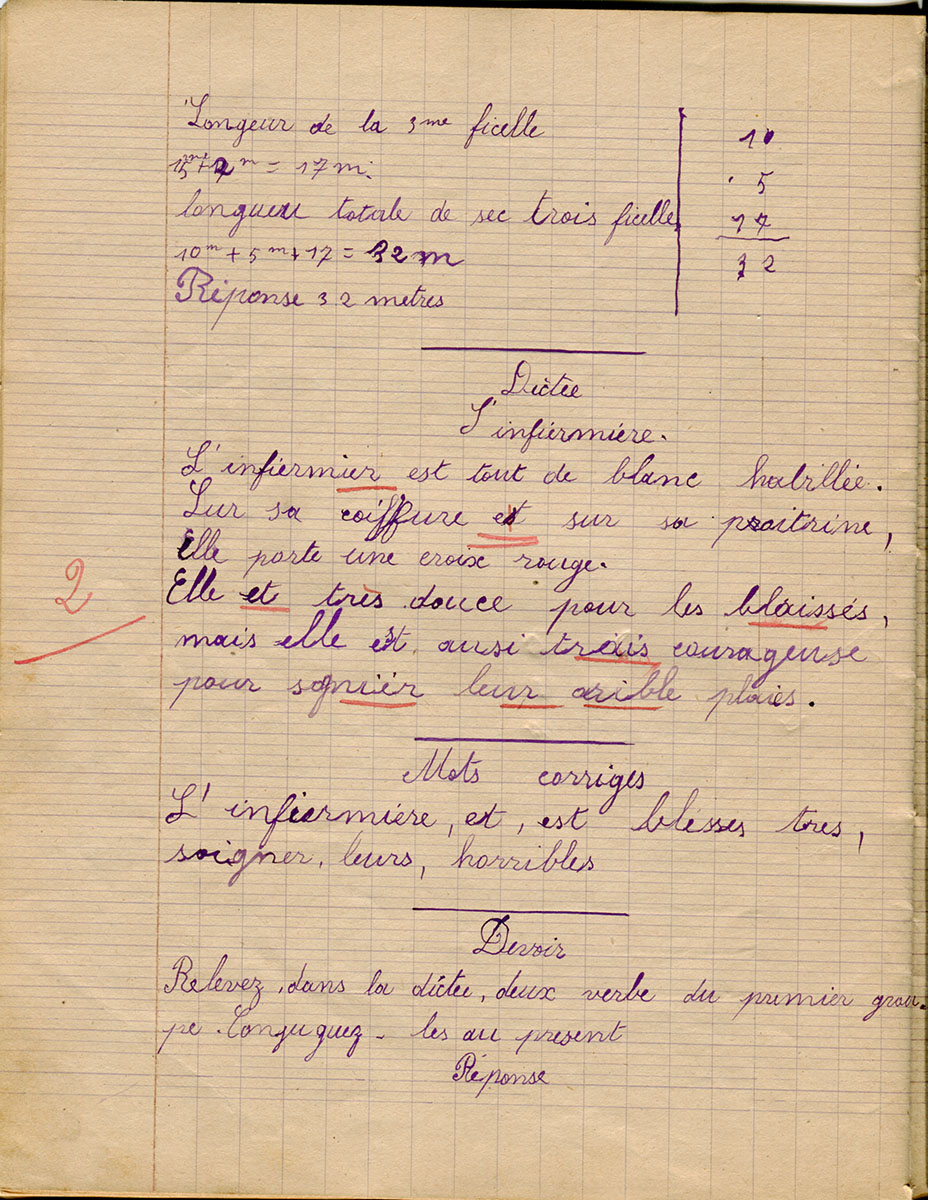 Longeur de la 3me ficelle
15m+2m = 17m.
longueur totale de sec trois ficelle
10m + 5m + 17 = 32m
Réponse 32 metres
10
5
17
32
Dictée
L'infiermière.
L'infiermier est tout de blanc habillée.
Sur sa coiffure et sur sa poitrine,
Elle porte une croix rouge.
2
Elle et très douce pour les blaissés,
mais elle est ausi trais courageuse
pour sogniér leur orible plaies.
Mots corriges
L'infiermière, et, est blesses tres,
soigner, leurs, horribles
Devoir
Relevez, dans la dictée, deux verbe du premier grou-
pe. Conguguez-les au present
Réponse